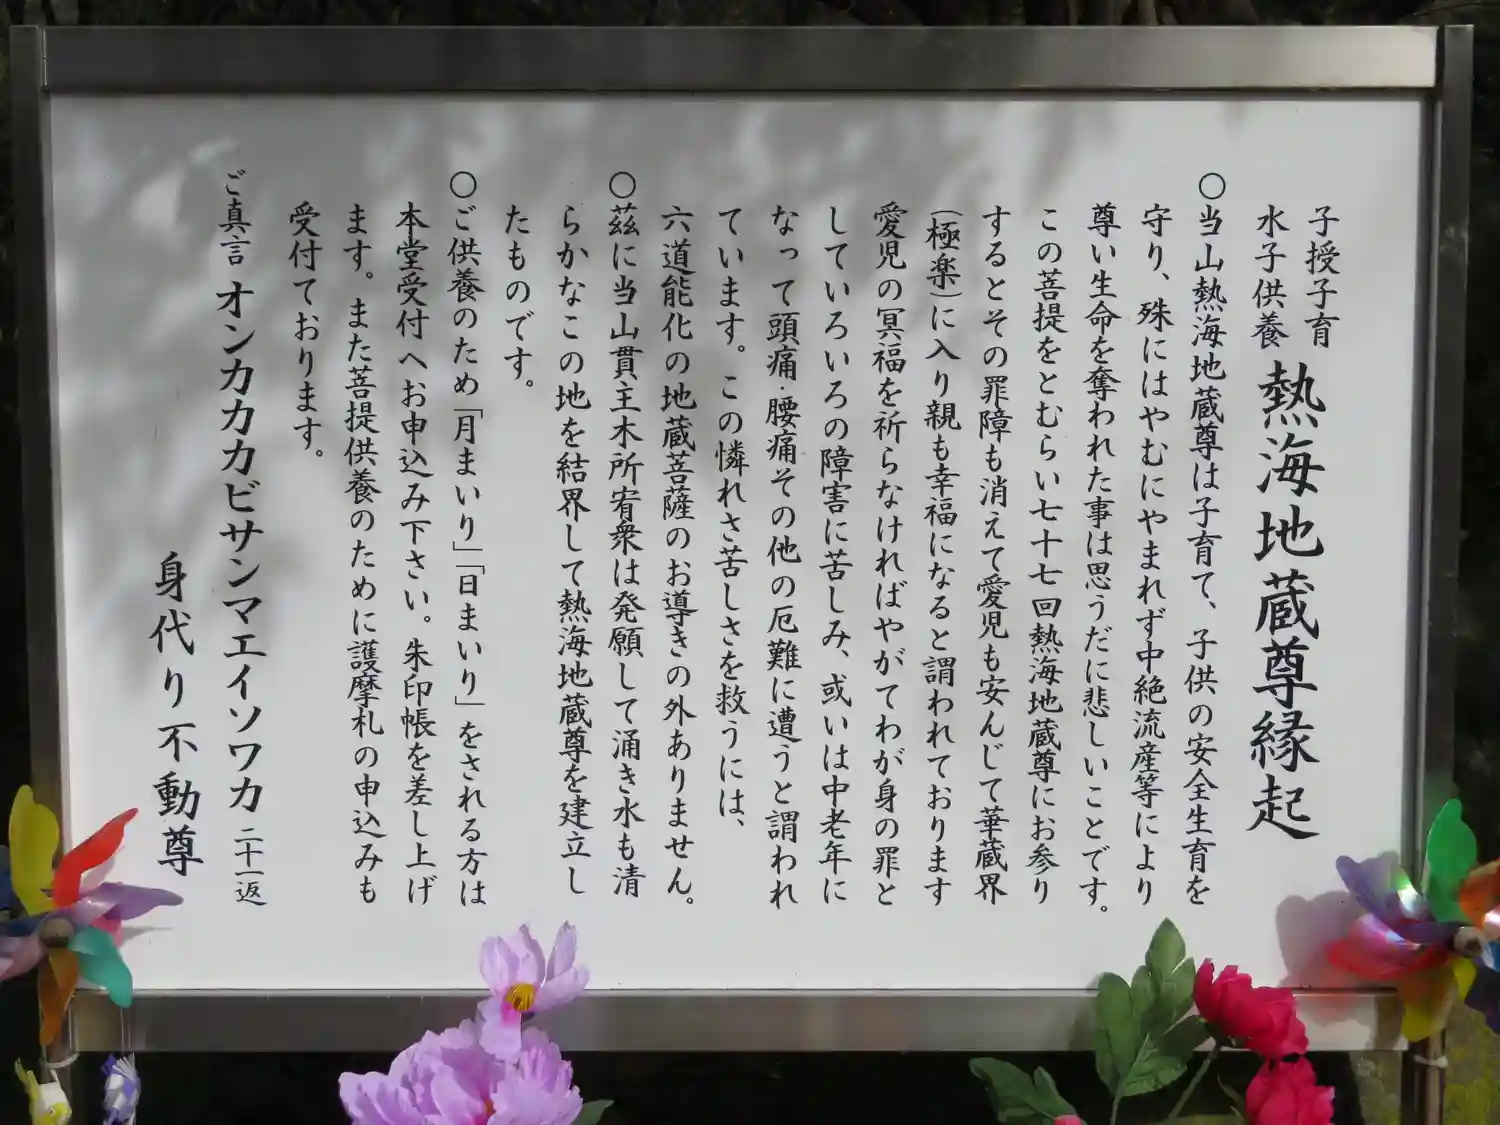 子授子育
水子供養
熱海地蔵尊縁起
○当山熱海地蔵尊は子育て、子供の安全生育を
守り、殊にはやむにやまれず中絶流産等により
尊い生命を奪われた事は思うだに悲しいことです。
この菩提をとむらい七十七回熱海地蔵尊にお参り
するとその罪障も消えて愛児も安んじて華蔵界
(極楽)に入り親も幸福になると謂われております
愛児の冥福を祈らなければやがてわが身の罪と
していろいろの障害に苦しみ、或いは中老年に
なって頭痛・腰痛その他の厄難に遭うと謂われ
ています。この憐れさ苦しさを救うには、
六道能化の地蔵菩薩のお導きの外ありません。
○茲に当山貫主木所宥衆は発願して涌き水も清
らかなこの地を結界して熱海地蔵尊を建立し
たものです。
○ご供養のため「月まいり」「日まいり」をされる方は
本堂受付へお申込み下さい。朱印帳を差し上げ
ます。また菩提供養のために護摩札の申込みも
受付ております。
ご真言 オンカカカビサンマエイソワカ 二十一返
身代り不動尊